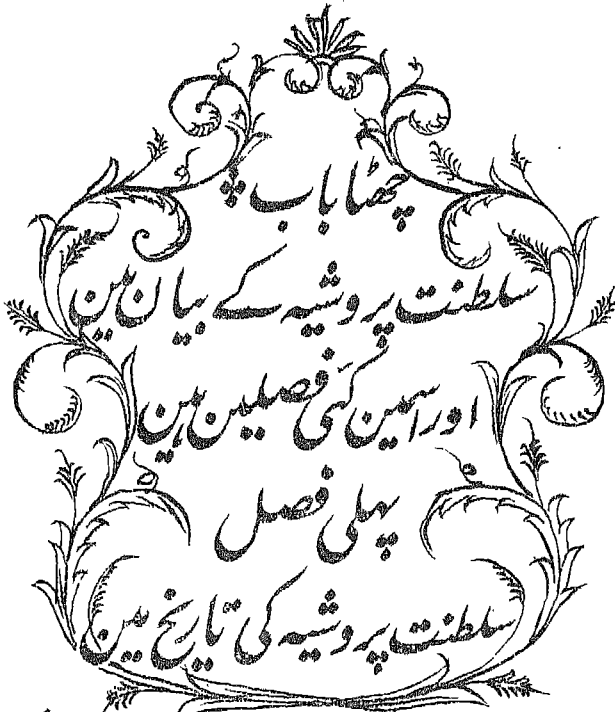 چھٹا باب
سلطنت پروشیہ کے بیان مین
اور اسمین کئی فصیلین ہین
پہلی فصل
سلطنت پروشیہ کی تاریخ مین